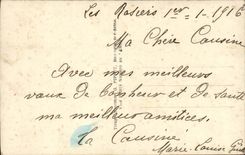 Les Rosiers 1er-1-1916
Ma Chère Cousine
Avec mes meilleurs
vœux de bonheur et de santé
ma meilleur amitiées.
Ta Cousine
Marie-Louise